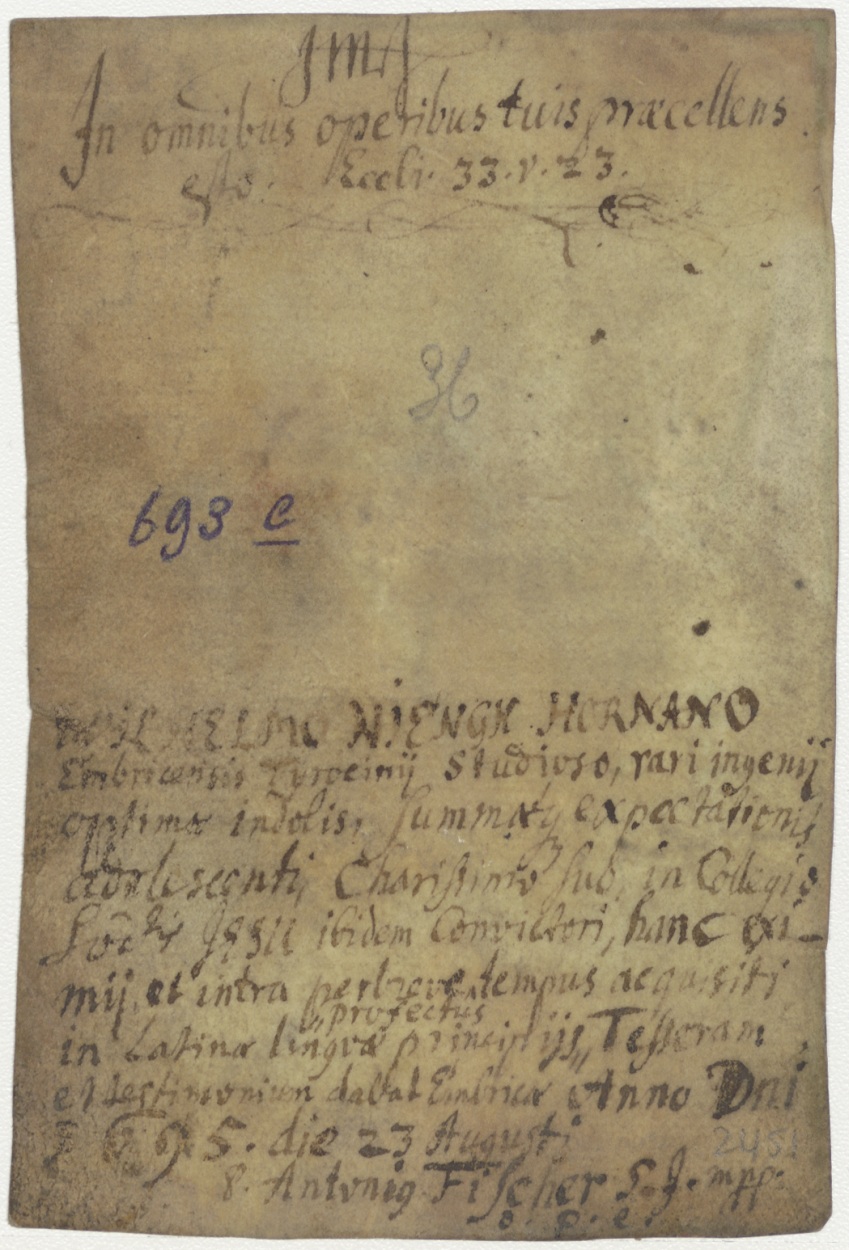 JMJ
In omnibus operibus tuis præcellens
esto. Eccli. 33. v. 23.
36
693 c
WILHELMO HIENGH HORNANO
Embricensis Tyrocinij Studioso, rari ingenij
optimæ indolis, summæq expectationis
adolescenti, Charissimo suo, in Collegio
Soctis JESU ibidem Convictori, hanc exi-
mij, et intra perbreve tempus acquisiti
profectus
in Latinæ linguæ principijs, Tesseram
et testimonium dabat Embricæ Anno Dni
1695. die 23 Augusti
2451
P. Antonig Fischer S. J. mpp.